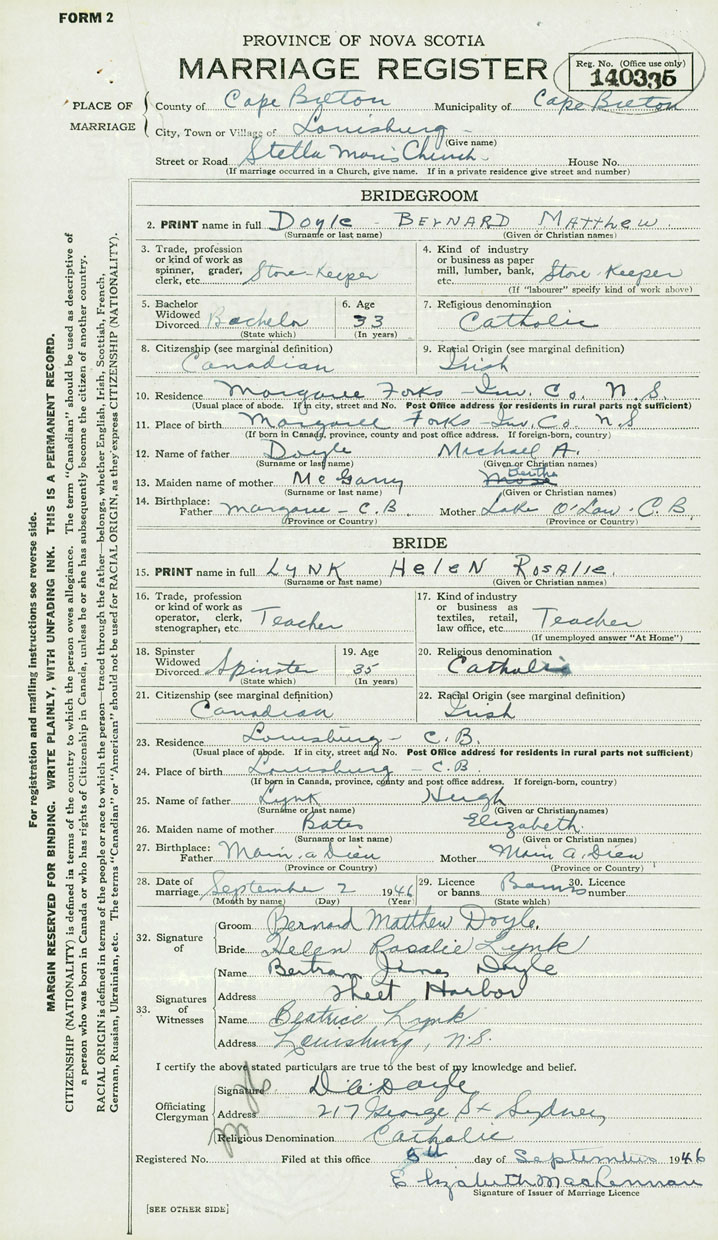 FORM 2
PROVINCE OF NOVA SCOTIA
MARRIAGE REGISTER
Reg. No. (Office use only)
140335
PLACE OF MARRIAGE
County of Cape Breton Municipality of Cape Breton
City, Town or Village of Louisburg
(Give name)
Street or Road Stella Maris Church House No.
(If marriage occurred in a Church, give name. If in a private residence give street and number)
BRIDEGROOM
2. PRINT name in full Doyle - BERNARD MATTHEW
(Surname or last name) (Given or Christian names)
3. Trade, profession or kind of work as spinner, grader, clerk, etc. Store-Keeper
4. Kind of industry or business as paper mill, lumber, bank, etc. Store-Keeper
(If "labourer" specify kind of work above)
5. Bachelor Widowed Divorced Bachelor (State which)
6. Age 33 (In years)
7. Religious denomination Catholic
8. Citizenship (see marginal definition) Canadian
9. Racial Origin (see marginal definition) Irish
10. Residence Margaree Forks - Inv. Co. N.S.
(Usual place of abode. If in city, street and No. Post Office address for residents in rural parts not sufficient)
11. Place of birth Margaree Forks - Inv. Co. N.S
(If born in Canada, province, county and post office address. If foreign-born, country)
12. Name of father Doyle Michael A.
(Surname or last name) (Given or Christian names)
13. Maiden name of mother McGarry Bertha
(Surname or last name) (Given or Christian names)
14. Birthplace: Father Margaree - C.B. Mother Lake O'Law - C.B.
(Province or Country) (Province or Country)
BRIDE
15. PRINT name in full LYNK HELEN ROSALIE.
(Surname or last name) (Given or Christian names)
16. Trade, profession or kind of work as operator, clerk, stenographer, etc. Teacher
17. Kind of industry or business as textiles, retail, law office, etc. Teacher
(If unemployed answer "At Home")
18. Spinster Widowed Divorced Spinster (State which)
19. Age 35 (In years)
20. Religious denomination Catholic
21. Citizenship (see marginal definition) Canadian
22. Racial Origin (see marginal definition) Irish
23. Residence Louisburg - C.B.
(Usual place of abode. If in city, street and No. Post Office address for residents in rural parts not sufficient)
24. Place of birth Louisburg - C.B.
(If born in Canada, province, county and post office address. If foreign-born, country)
25. Name of father Lynk Hugh
(Surname or last name) (Given or Christian names)
26. Maiden name of mother Bates Elizabeth
(Surname or last name) (Given or Christian names)
27. Birthplace: Father Main a Dieu Mother Main a Dieu
(Province or Country) (Province or Country)
28. Date of marriage September 2 1946
(Month by name) (Day) (Year)
29. Licence or banns Banns (State which)
30. Licence number
32. Signature of
Groom Bernard Matthew Doyle.
Bride Helen Rosalie Lynk
33. Signatures of Witnesses
Name Bertram James Doyle
Address Sheet Harbor
Name Beatrice Lynk
Address Louisburg, N.S.
I certify the above stated particulars are true to the best of my knowledge and belief.
Officiating Clergyman
Signature Doyle
Address 217 George St Sydney
Religious Denomination Catholic
Registered No. Filed at this office 5th day of September 1946
Elizabeth MacLennan
Signature of Issuer of Marriage Licence
[SEE OTHER SIDE]
For registration and mailing instructions see reverse side.
MARGIN RESERVED FOR BINDING. WRITE PLAINLY, WITH UNFADING INK. THIS IS A PERMANENT RECORD.
CITIZENSHIP (NATIONALITY) is defined in terms of the country to which the person owes allegiance. The term "Canadian" should be used as descriptive of
a person who was born in Canada or who has rights of Citizenship in Canada, unless he or she has subsequently become the citizen of another country.
RACIAL ORIGIN is defined in terms of the people or race to which the person—traced through the father—belongs, whether English, Irish, Scottish, French,
German, Russian, Ukrainian, etc. The terms "Canadian" or "American" should not be used for RACIAL ORIGIN, as they express CITIZENSHIP (NATIONALITY).